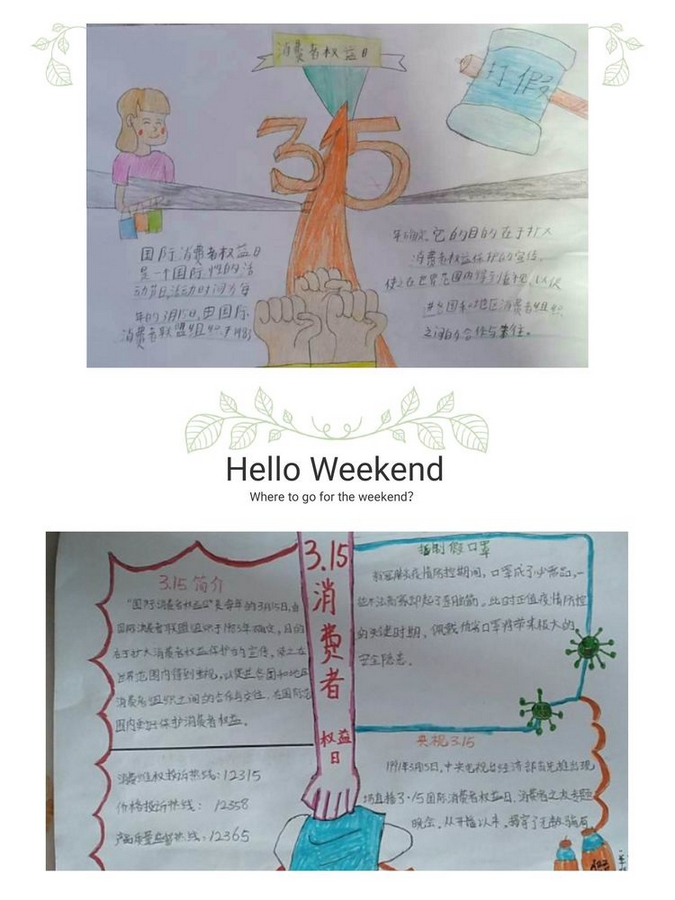 消费者权益日
打假
3 15
国际消费者权益日
是一个国际性的活
动节日,活动时间为每
年的3月15日,由国际
消费者联盟组织于1983
年确定,它的目的在于扩大
消费者权益保护的宣传,
使之在世界范围内得到重视,以促
进各国和地区消费者组织
之间的合作与
Hello Weekend
Where to go for the weekend?
3.15 简介
"国际消费者权益日"是每年的3月15日,由
国际消费者联盟组织于1983年确定,目的
在于扩大消费者权益保护的宣传,使之在
世界范围内得到重视,以促进各国和地区
消费者组织之间的合作与交往,在国际范
围内更好保护消费者权益。
消费维权投诉热线:12315
价格投诉热线:12358
产品质量监督热线:12365
3.15
消
费
者
权益
日
假口罩
疫情防控期间,口罩成了必需品,一
些不法商家却起了,此时正值疫情防控
的关键时期,佩戴口罩将带来极大的
安全隐患。
央视3.15
1991年3月15日,中央电视台经济部首先推出现
场直播3·15国际消费者权益日,消费者之友专题
晚会,从开播以来,